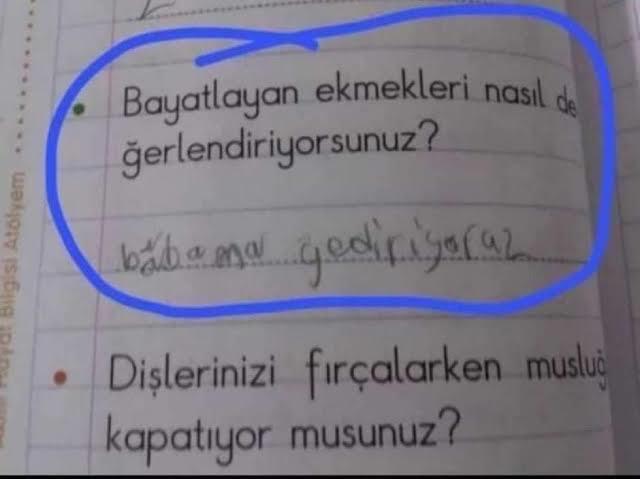 Bayatlayan ekmekleri nasıl de
ğerlendiriyorsunuz?
babama yediriyoruz
Dişlerinizi fırçalarken musluğ
kapatıyor musunuz?
Hayat Bilgisi Atölyem